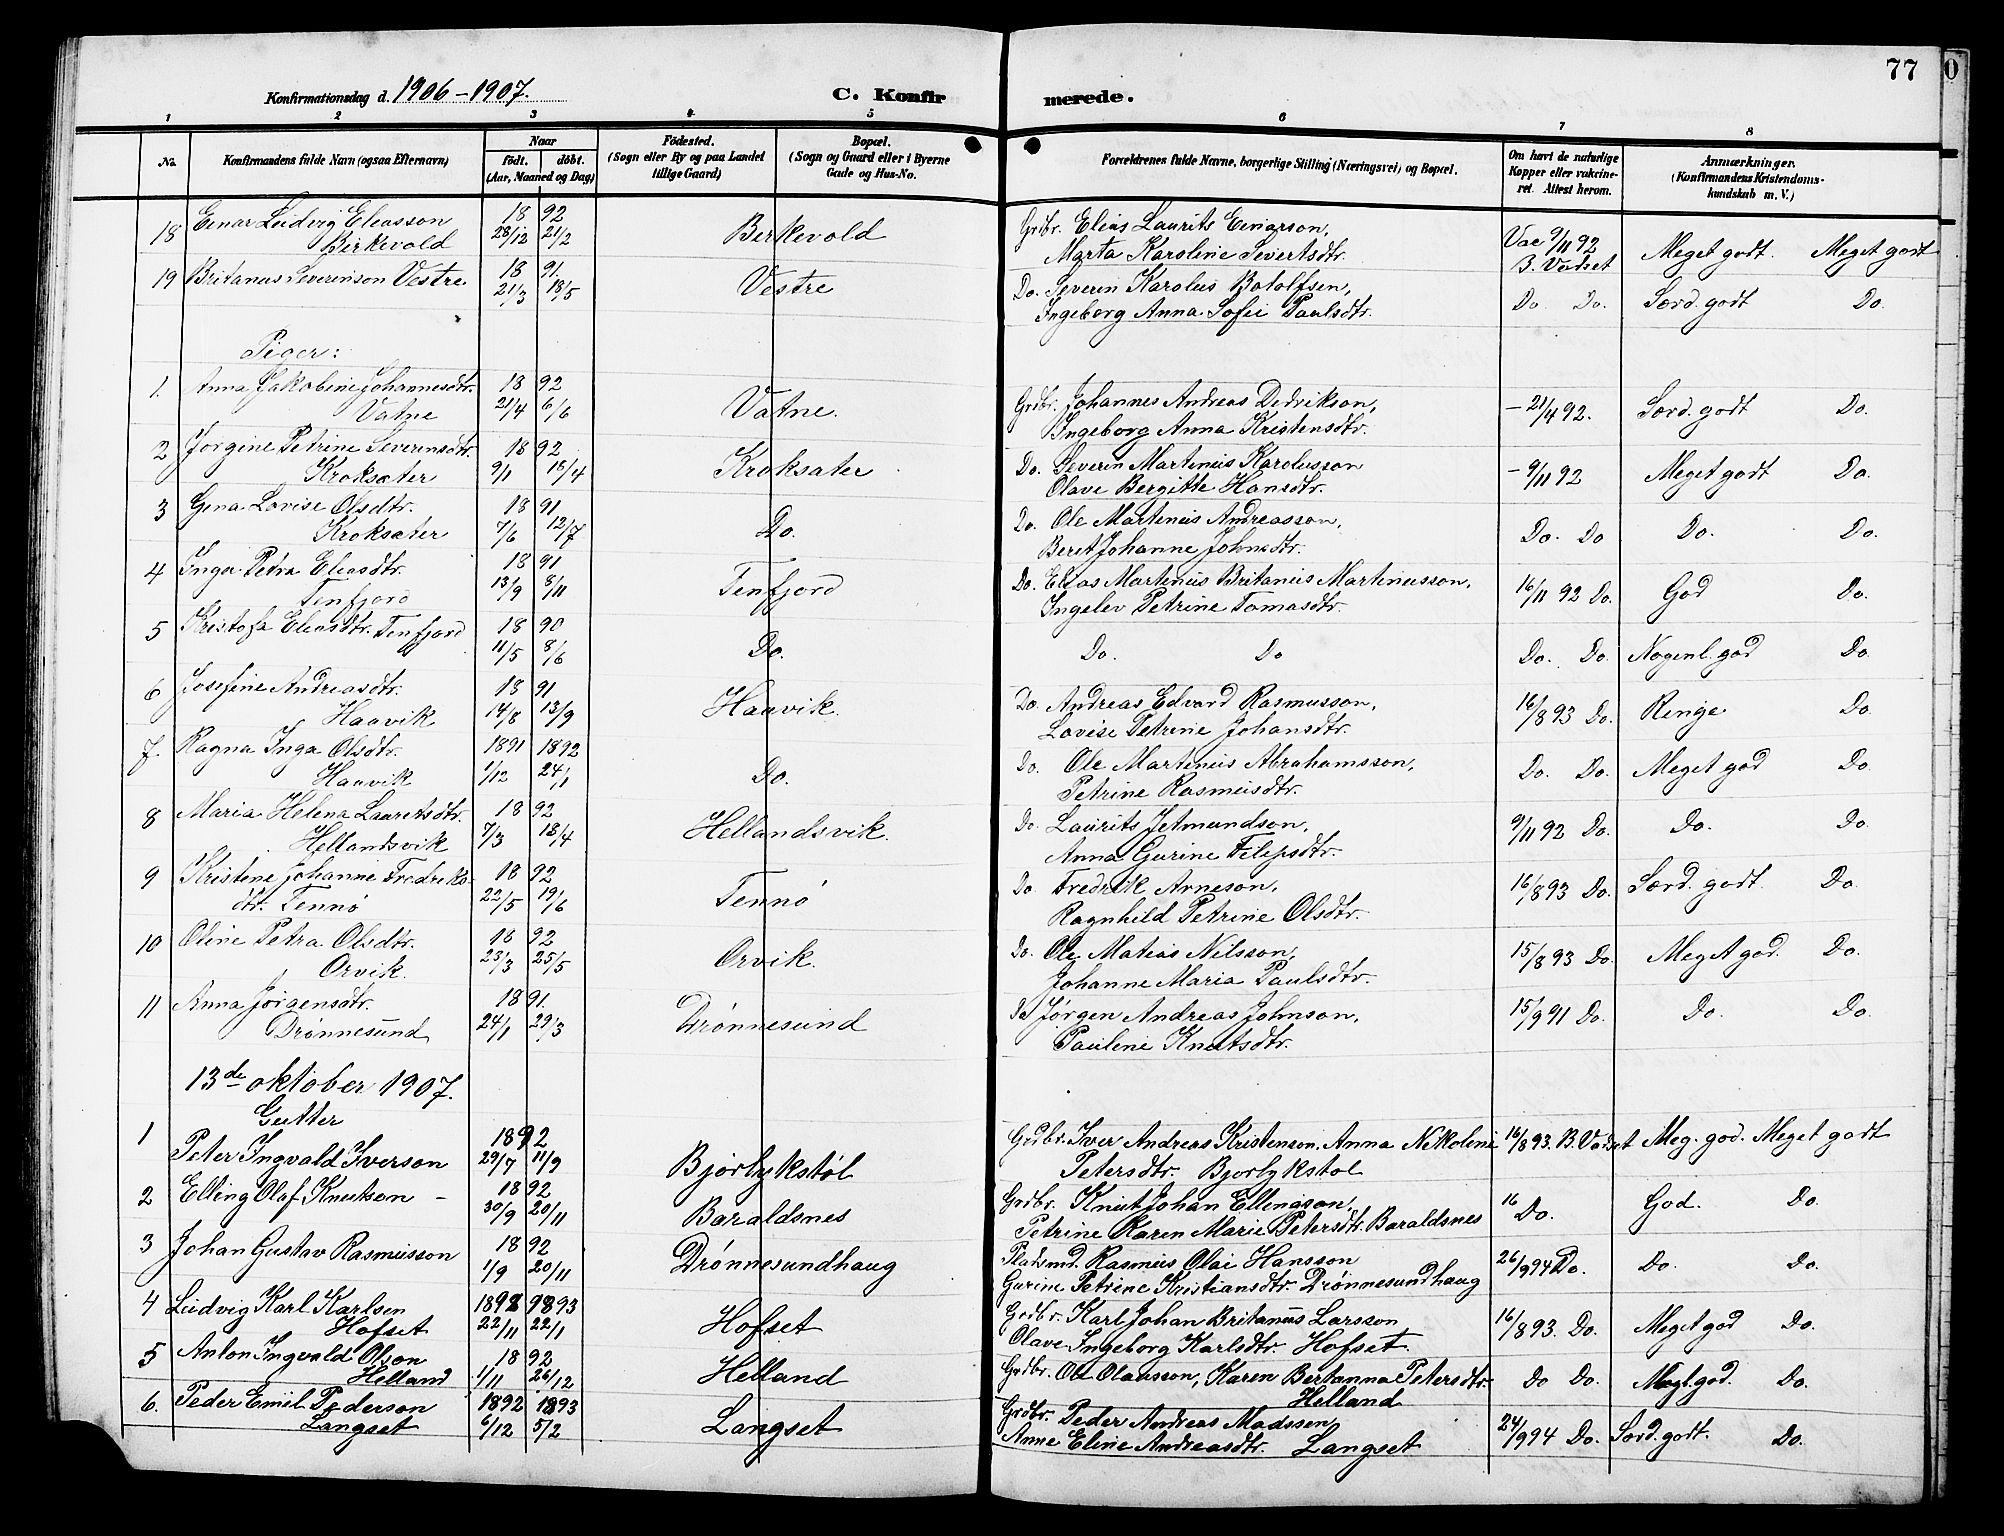 77
0
Konfirmationsdag d. 1906-1907.
C. Konfirmerede.
1 2 3 4 5 6 7 8
No. Konfirmandens fulde Navn (ogsaa Efternavn) Naar født. døbt. (Aar, Maaned og Dag) Fødested. (Sogn eller By og paa Landet tillige Gaard) Bopæl. (Sogn og Gaard eller i Byerne Gade og Hus-No. Forældrenes fulde Navne, borgerlige Stilling (Næringsvei) og Bopæl. Om havt de naturlige Kopper eller vakcineret. Attest herom. Anmærkninger. (Konfirmandens Kristendomskundskab m. V.)
18 Einar Ludvig Eleasson 18 92 Birkevold Grdbr. Elias Laurits Einarson, Vac 9/11 92 Meget godt. Meget godt
Birkevold 28/12 21/2 Marta Karoline Sivertsdtr. B. Vadset
19 Britanus Severinson Vestre 18 91 Vestre Do. Severin Karolus Botolfsen, Do Do. Særd. godt Do.
21/3 18/5 Ingeborg Anna Sofie Paulsdtr.
Piger:
1. Anna Jakobine Johannesdtr. 18 92 Vatne. Grdbr. Johannes Andreas Dedrikson, - 21/4 92. Særd. godt Do.
Vatne 21/4 6/6 Ingeborg Anna Kristensdtr.
2 Jørgine Petrine Severinsdtr. 18 92 Kroksæter Do. Severin Martinus Karolusson - 9/11 92 Meget godt Do.
Kroksæter 9/1 18/4 Olave Bergitte Hansdtr.
3 Gina Lovise Olsdtr. 18 91 Do. Do. Ole Martinus Andreasson, Do. Do Do. Do.
Kroksæter 7/6 12/7 Beret Johanne Johnsdtr.
4 Inga Petra Eliasdtr. 18 91 Tenfjord Do. Elias Martinus Britanus Martinusson, 16/11 92 Do. God Do.
Tenfjord 13/9 8/11 Ingelev Petrine Tomasdtr.
5 Kristofa Eliasdtr. Tenfjord 18 90 Do. Do. Do Do. Do. Nogenl. god Do.
11/5 8/6
6 Josefine Andreasdtr. 18 91 Haavik. Do. Andreas Edvard Rasmusson, 16/8 93 Do. Ringe Do.
Haavik 14/8 13/9 Lovise Petrine Johansdtr.
7. Ragna Inga Olsdtr. 1891 1892 Do. Do. Ole Martinus Abrahamsson, Do. Do. Meget god Do.
Haavik 1/12 24/1 Petrine Rasmusdtr.
8 Maria Helena Lauritsdtr. 18 92 Hellandsvik. Do Laurits Jetmundson, 9/11 92 Do. Do. Do.
Hellandsvik 7/3 18/4 Anna Gurine Filipsdtr.
9 Kristine Johanne Fredriks- 18 92 Tennø Do Fredrik Arneson, 16/8 93 Do. Særd. godt. Do.
dtr. Tennø 22/5 19/6 Ragnhild Petrine Olsdtr.
10 Oline Petra Olsdtr. 18 92 Orvik. Do. Ole Matias Nilsson, 15/8 93 Do. Meget god. Do.
Orvik. 23/3 25/5 Johanne Maria Paulsdtr.
11 Anna Jørgensdtr. 18 91. Drønnesund Do Jørgen Andreas Johnson, 15/9 91 Do. Do. Do.
Drønnesund 24/1 29/3 Pauline Knutsdtr.
13de oktober 1907.
Gutter
1 Peter Ingvald Iverson 1892 29/7 11/9 Bjørlykstøl Grdbr. Iver Andreas Kristenson, Anna Nikoline 16/8 93. B. Vadset Meg. god. Meget godt
Petersdtr. Bjørlykstøl
2 Elling Olaf Knutsen - 18 92 Baraldsnes Grdbr. Knut Johan Ellingson, 16 Do. God. Do.
30/9 20/11 Petrine Karen Marie Petersdtr. Baraldsnes
3 Johan Gustav Rasmusson 18 92 Drønnesundhaug Pladsmd. Rasmus Olai Hansson 26/9 94 Do. Do. Do.
1/9 20/11 Gurine Petrine Kristiansdtr. Drønnesundhaug
4 Ludvig Karl Karlsen 1892 1893 Hofset Grdbr. Karl Johan Britanus Larsson 16/8 93. Do. Meget god Do.
Hofset 22/11 22/1 Olave Ingeborg Karlsdtr. Hofset.
5 Anton Ingvald Olson 18 92 Helland Grdbr. Ole Olausson, Karen Bertanna Petersdtr. Do Do. Megt. god. Do.
Helland 1/11 26/12 Helland
6. Peder Emil Pederson 1892 1893 Langset Grdbr. Peder Andreas Madssen, 24/9 94 Do. Særd. godt. Do.
Langset 6/12 5/2 Anne Eline Andreasdtr. Langset